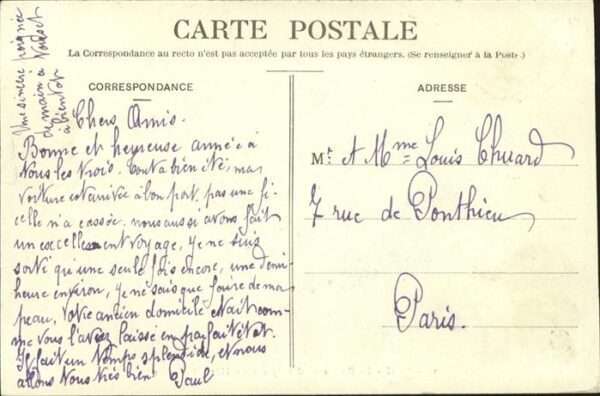 CARTE POSTALE
La Correspondance au recto n'est pas acceptée par tous les pays étrangers. (Se renseigner à la Poste.)
CORRESPONDANCE
Chers Amis.
Bonne et heureuse année à
Vous les trois. Tout a bien été, ma
voiture est arrivée à bon port, pas une fi-
celle n'a cassée, nous aussi avons fait
un excellent voyage, Je ne suis
sorti qu'une seule fois encore, une demi-
heure environ, Je ne sais que foure de ma
peau. Votre ancien domicile était com-
me vous l'aviez laissé en parfait état.
Il fait un temps splendide, et nous
allons tous très bien Paul
Une sincère poignée
de main à
à bientôt
ADRESSE
Mr. et Mme Louis Chuard
7 rue de Ponthieu
Paris.